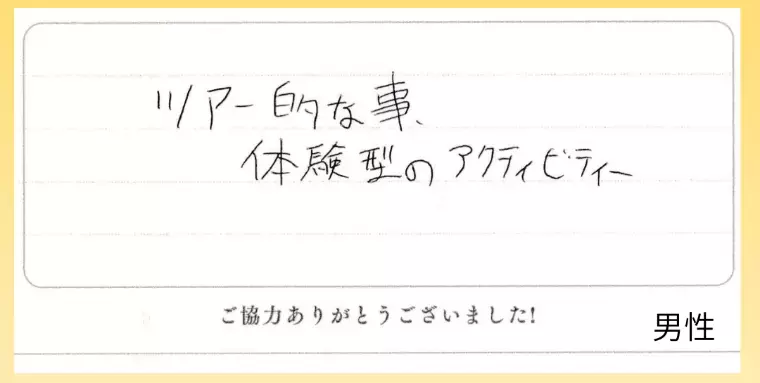 ツアー的な事、
体験型のアクティビティー
ご協力ありがとうございました!
男性